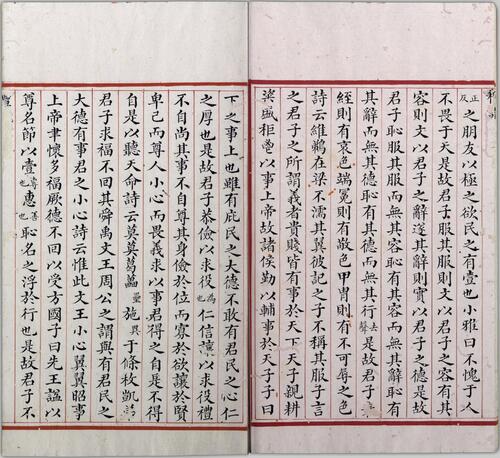 正反之朋友以極之欲民之有壹也小雅曰不愧于人
不畏于天是故君子服其服則文以君子之容有其
容則文以君子之辭遂其辭則實以君子之德是故
君子恥服其服而無其容恥有其容而無其辭恥有
其辭而無其德恥有其德而無其行去聲是故君子
絰則有哀色端冕則有敬色甲冑則有不可辱之色
詩云維鵜在梁不濡其翼彼記之子不稱其服子言
之君子之所謂義者貴賤皆有事於天下天子親耕
粢盛秬鬯以事上帝故諸侯勤以輔事於天子子曰
下之事上也雖有庇民之大德不敢有君民之心仁
之厚也是故君子恭儉以求役為也仁信讓以求役禮
不自尚其事不自尊其身儉於位而寡於欲讓於賢
卑己而尊人小心而畏義求以事君得之自是不得
自是以聽天命詩云莫莫葛藟量施異于條枚凱
君子求福不回其舜禹文王周公之謂與有君民之
大德有事君之小心詩云惟此文王小心翼翼昭事
上帝聿懷多福厥德不回以受方國子曰先王謚以
尊名節以壹尊也惠善也恥名之浮於行也是故君子不